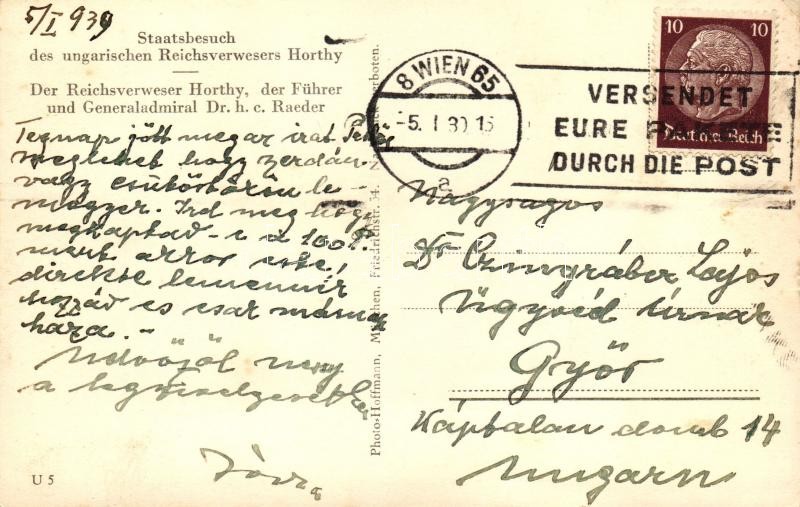 5/I 939
Staatsbesuch
des ungarischen Reichsverwesers Horthy
Der Reichsverweser Horthy, der Führer
und Generaladmiral Dr. h. c. Raeder
Tegnap jött meg az irat
meglehet hogy zerdán
vagy csütörtökön le-
megyek. Ird meg hogy
megkaptad-e a 100 P.
mert
direkte
hozzád és csak
haza. -
Üdvözöl
a
U 5
Photo-Hoffmann, München, Friedrichstr. 34. verboten.
8 WIEN 65
-5. I 39 15
a
VERSENDET
EURE PAKETE
DURCH DIE POST
10 10
Deutsches Reich
Nagyságos
Dr Czingráber Lajos
ügyvéd úrnak
Győr
Káptalan domb 14
Ungarn